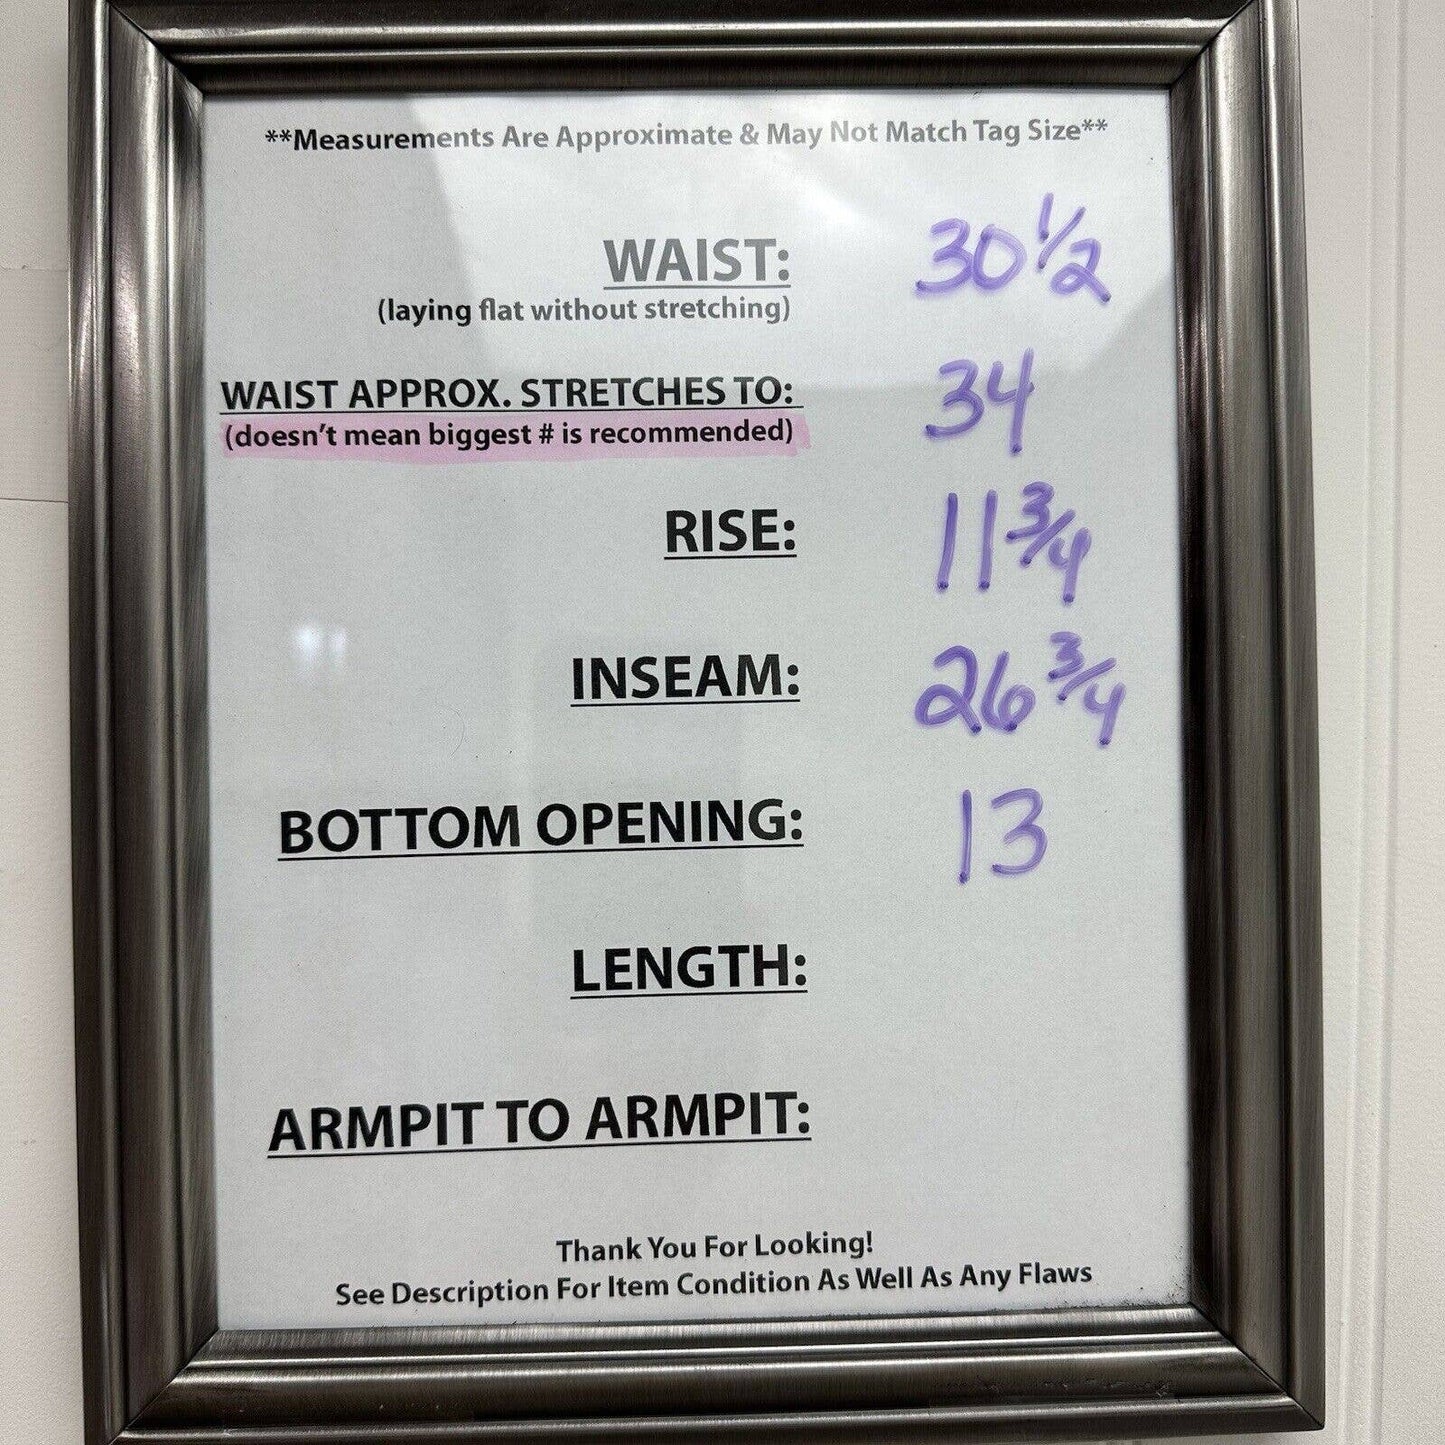 **Measurements Are Approximate & May Not Match Tag Size**
WAIST: 30 1/2
(laying flat without stretching)
WAIST APPROX. STRETCHES TO: 34
(doesn't mean biggest # is recommended)
RISE: 11 3/4
INSEAM: 26 3/4
BOTTOM OPENING: 13
LENGTH:
ARMPIT TO ARMPIT:
Thank You For Looking!
See Description For Item Condition As Well As Any Flaws